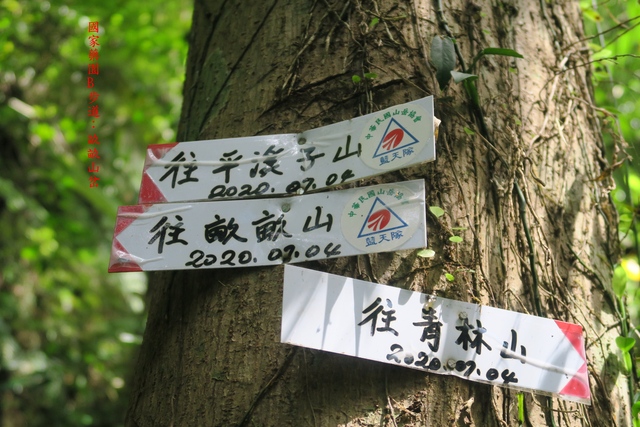 往平渓子山
2020.07.04
中華民國山岳協會
藍天隊
往畝畝山
2020.07.04
中華民國山岳協會
藍天隊
往青林山
2020.07.04